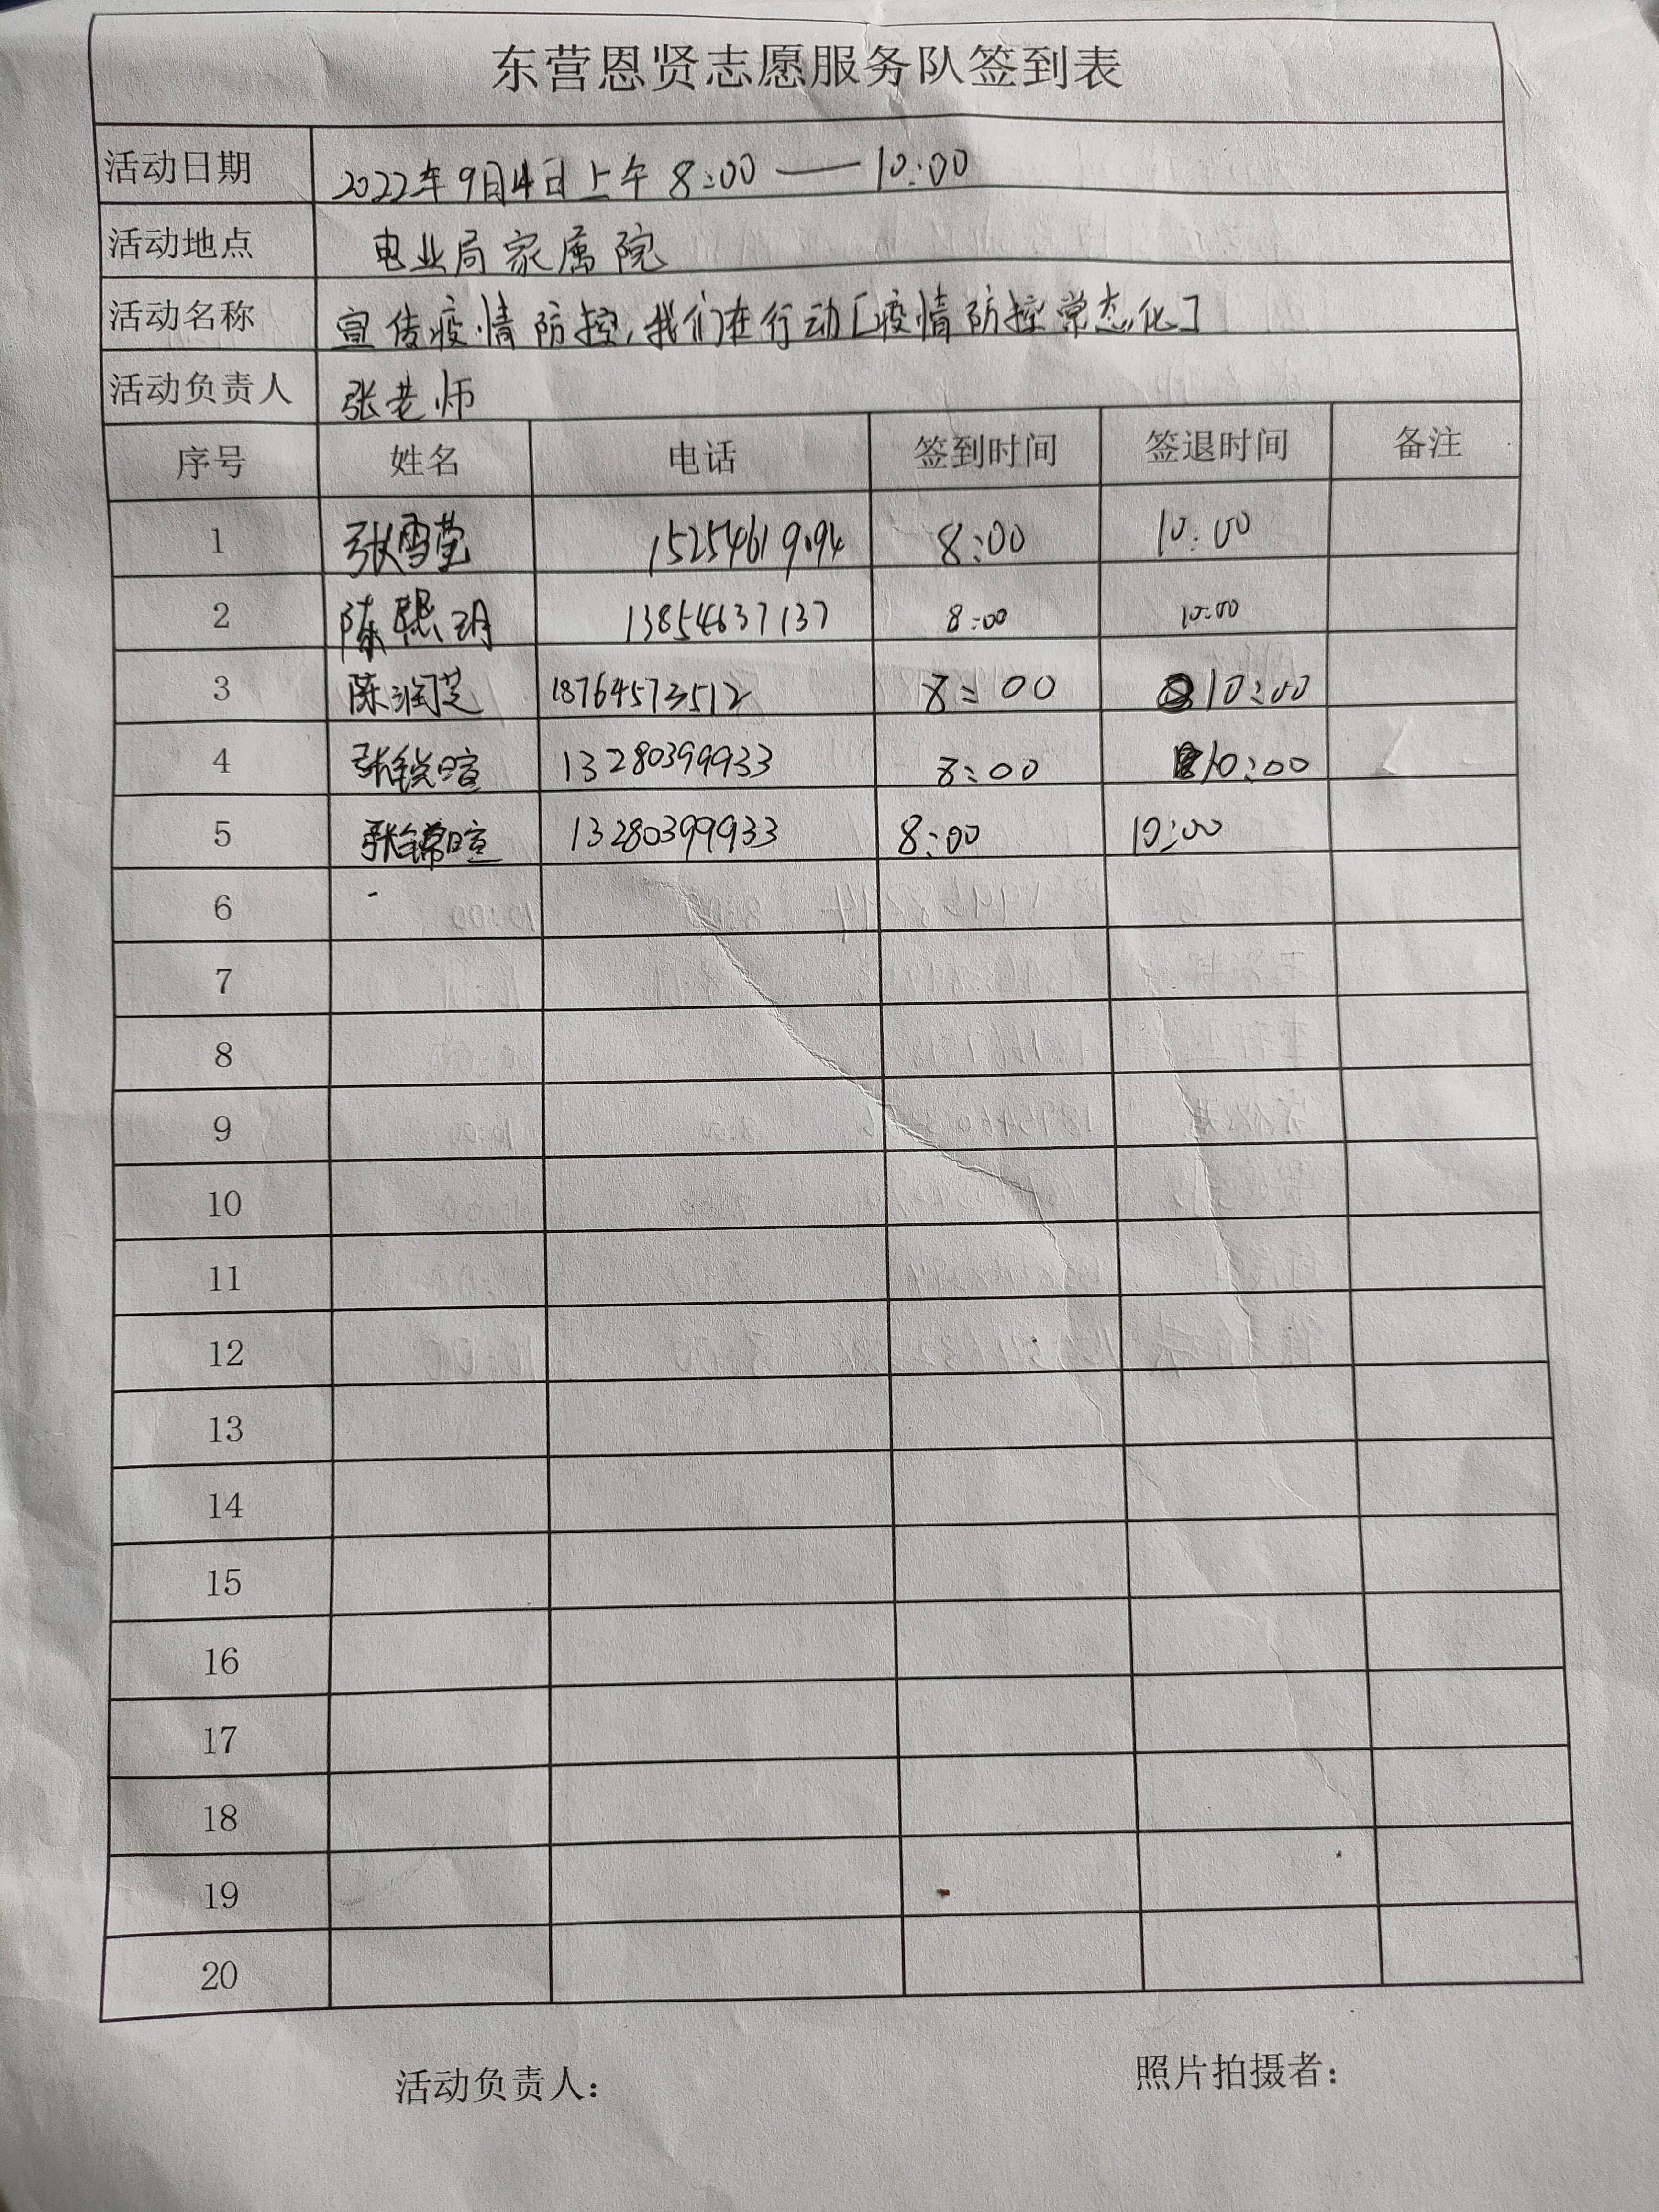 东营恩贤志愿服务队签到表
活动日期 2022年9月4日上午 8:00 —— 10:00
活动地点 电业局家属院
活动名称 宣传疫情防控,我们在行动[疫情防控常态化]
活动负责人 张老师
序号 姓名 电话 签到时间 签退时间 备注
1 张雪莹 15254619094 8:00 10:00
2 陈熙玥 13854637137 8:00 10:00
3 陈润芝 18764573512 8:00 10:00
4 张锐暄 13280399933 8:00 10:00
5 张锦暄 13280399933 8:00 10:00
6
7
8
9
10
11
12
13
14
15
16
17
18
19
20
活动负责人: 照片拍摄者: